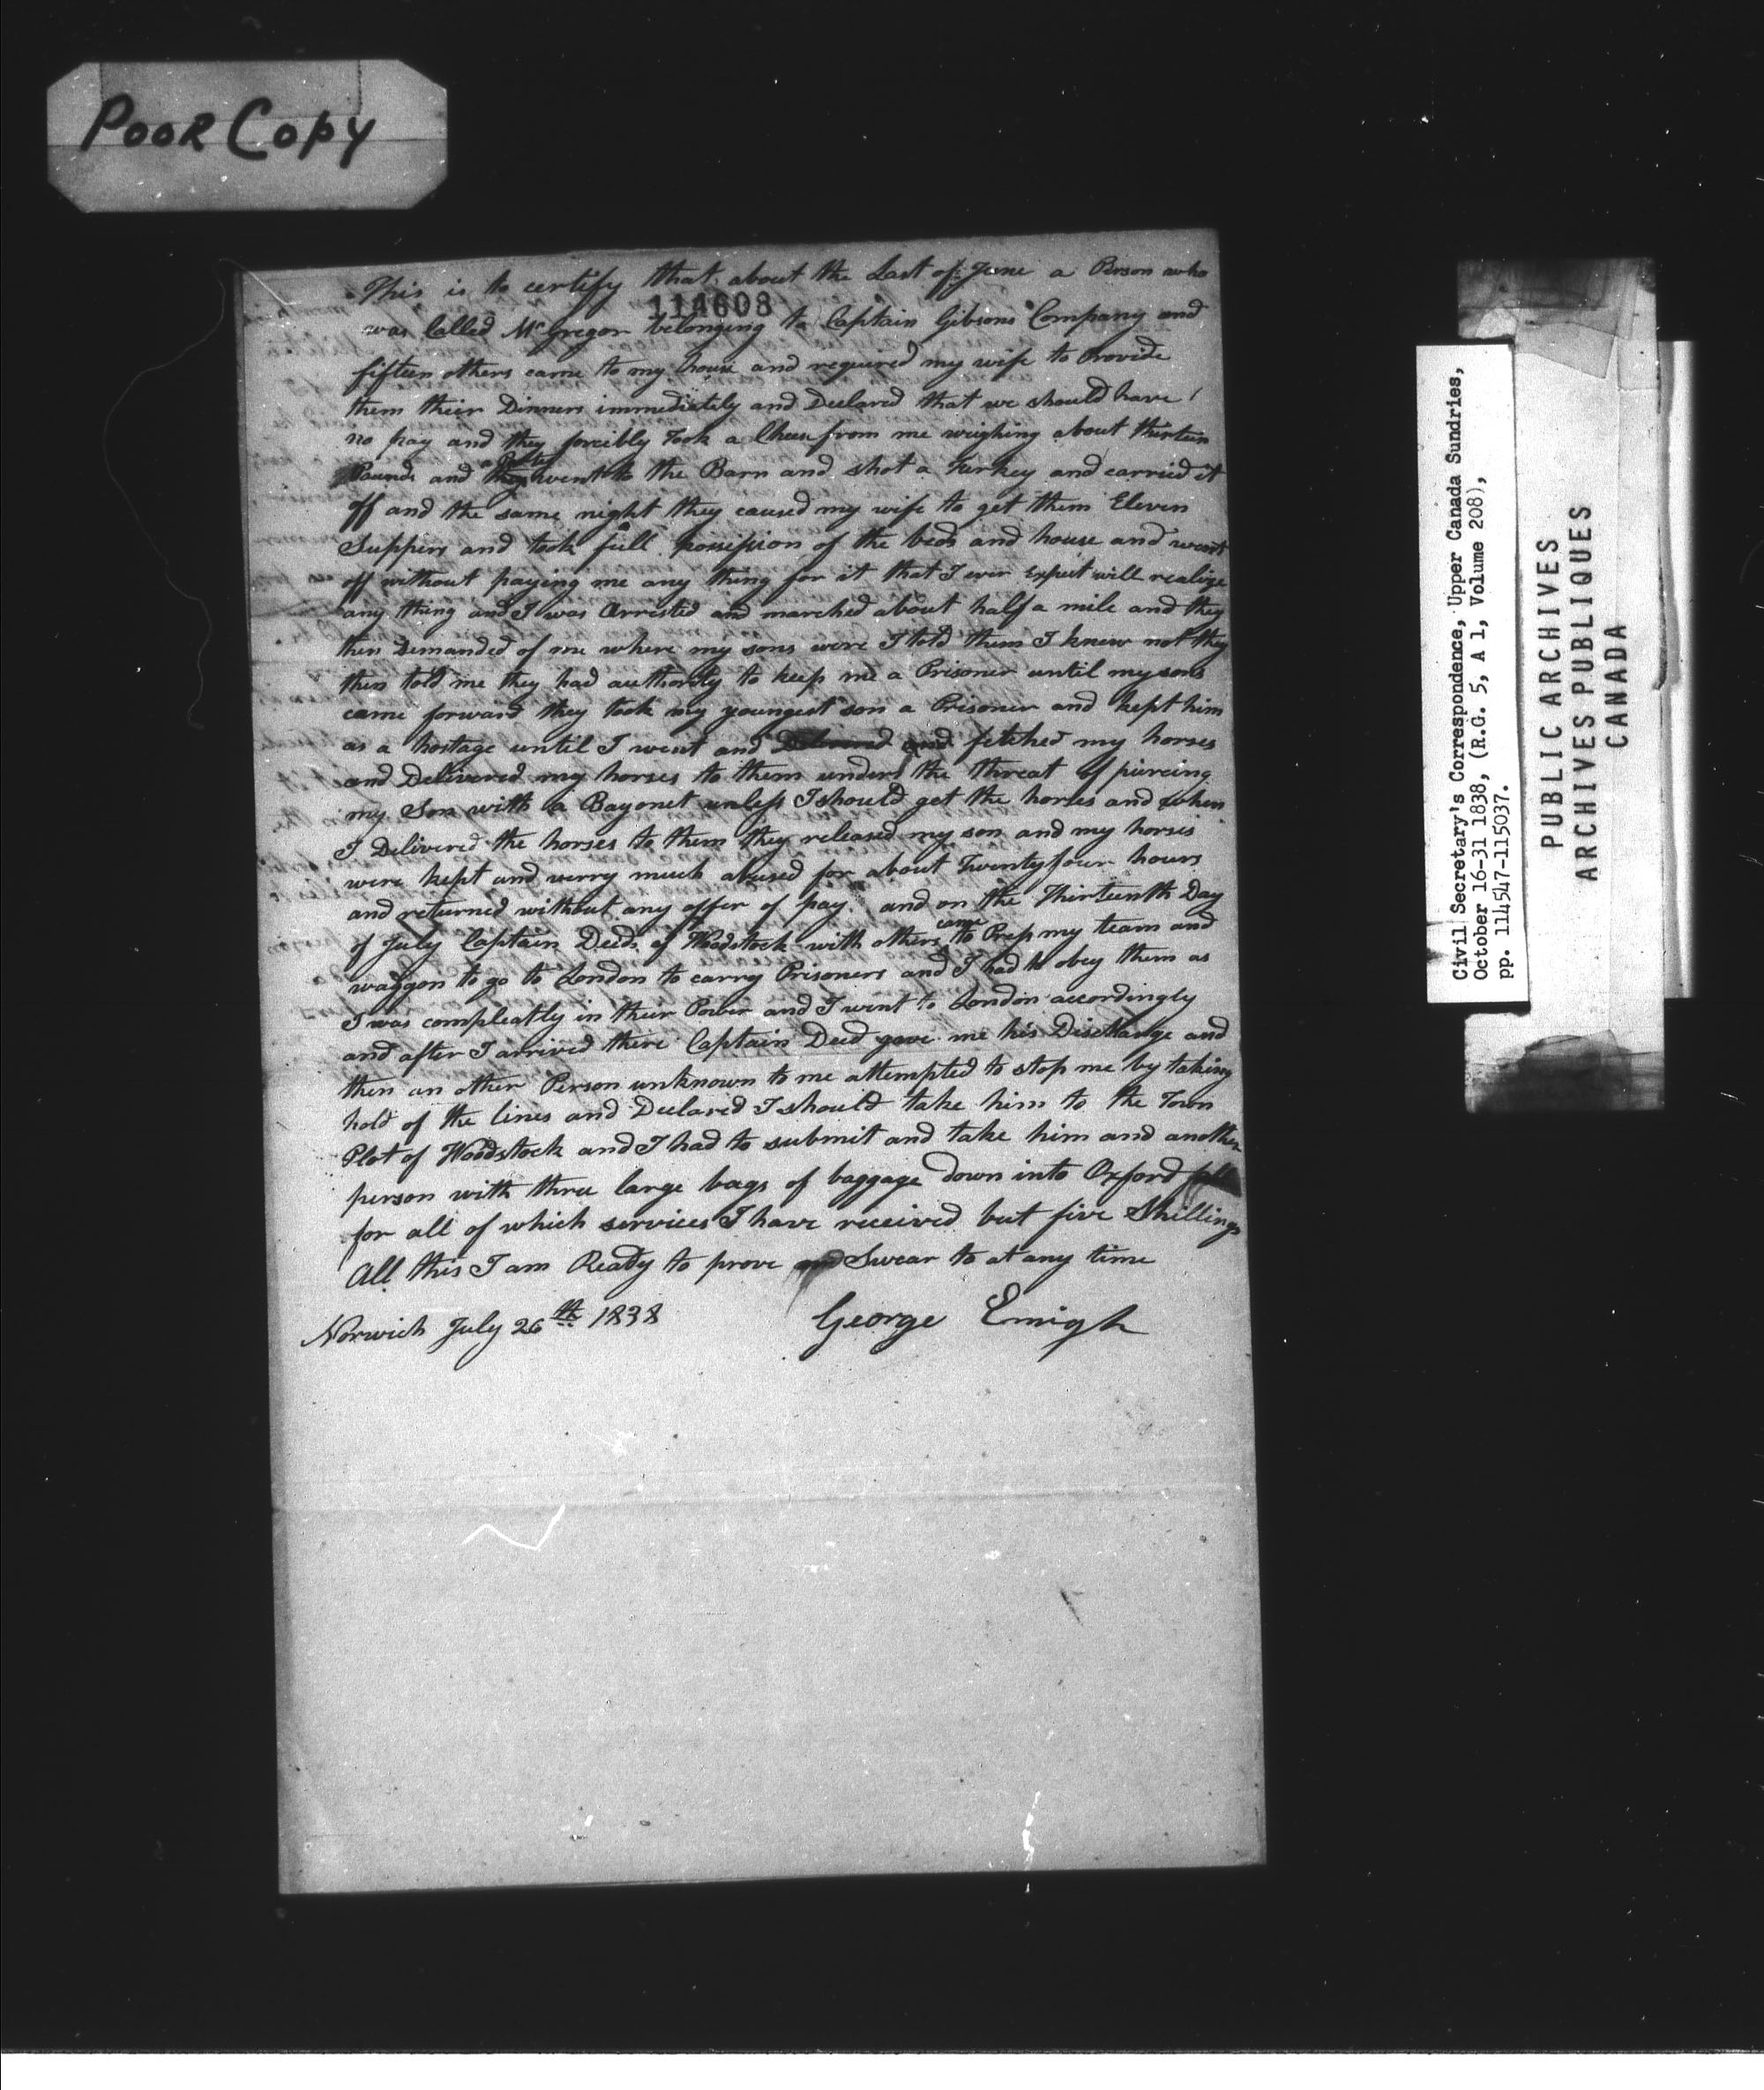 Poor Copy
This is to certify that about the Last of June a Person who
114608
was Called McGregor belonging to Captain Gibsons Company and
fifteen others came to my house and required my wife to Provide
them their Dinners immediately and Declared that we should have
no pay and they forcibly Took a Cheese from me weighing about thirteen
Pounds and went to the Barn and shot a Turkey and carried it
off and the same night they caused my wife to get them Eleven
Suppers and took full possession of the beds and house and went
off without paying me any thing for it that I ever Expect will realize
any thing and I was Arrested and marched about half a mile and they
then Demanded of me where my sons were I told them I knew not they
then told me they had authority to keep me a Prisoner until my sons
came forward they took my youngest son a Prisoner and kept him
as a hostage until I went and Delivered and fetched my horses
and Delivered my horses to them under the threat of piercing
my Son with a Bayonet unless I should get the horses and when
I Delivered the horses to them they released my son and my horses
were kept and verry much abused for about Twentyfour hours
and returned without any offer of pay and on the Thirteenth Day
of July Captain Deeds of Woodstock with others came to Press my team and
waggon to go to London to carry Prisoners and I had to obey them as
I was compleatly in their Power and I went to London accordingly
and after I arrived there Captain Deed gave me his Discharge and
then an other Person unknown to me attempted to stop me by taking
hold of the lines and Declared I should take him to the Town
Plot of Woodstock and I had to submit and take him and another
person with three large bags of baggage down into Oxford
for all of which services I have received but five Shillings
All this I am Ready to prove and Swear to at any time
Norwich July 26th 1838 George Emigh
Civil Secretary's Correspondence, Upper Canada Sundries,
October 16-31 1838, (R.G. 5, A 1, Volume 208),
pp. 114547-115037.
PUBLIC ARCHIVES
ARCHIVES PUBLIQUES
CANADA